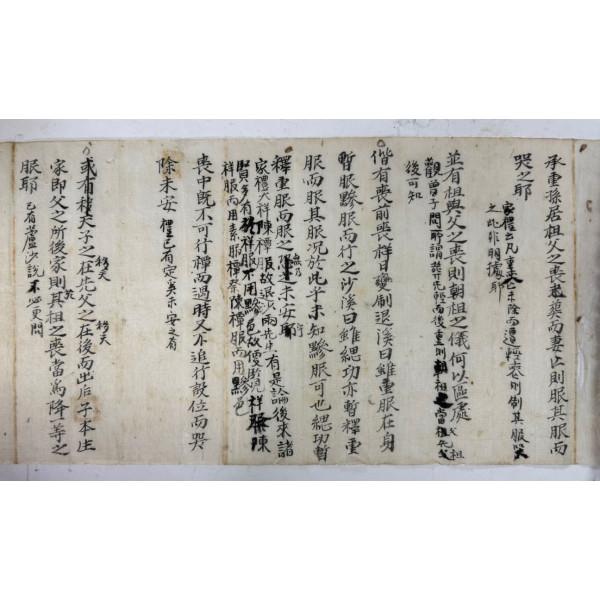 承重孫居祖父之喪未葬而妻亡則服其服而
哭之耶
家禮云凡重喪未除而遭輕喪則制其服哭
之此非明據耶
並有祖與父之喪則朝祖之儀何以區處
父祖
觀曾子問所謂葬先輕而後重則朝祖當祖先父
後可知
偕有喪前喪祥日變制退溪曰雖重服在身
暫服黲服而行之沙溪曰雖緦功亦暫釋重
服而服其服況於此乎未知黲服可也緦功暫
釋重服而服之無乃未安耶
家禮大祥陳禫服故退沙兩先生有是論後來諸
賢多有祥服不用黲色故便於祥服陳
祥服而用素服禫祭陳禫服而用黲色
喪中旣不可行禫而過時又不追行設位而哭
除未安
禮已有定奚未安之有
或有稱夫子之在先父之在後而出后子本生
家即父之所後家則其祖之喪當爲降一等之
服耶
已有蘆沙說不必更問